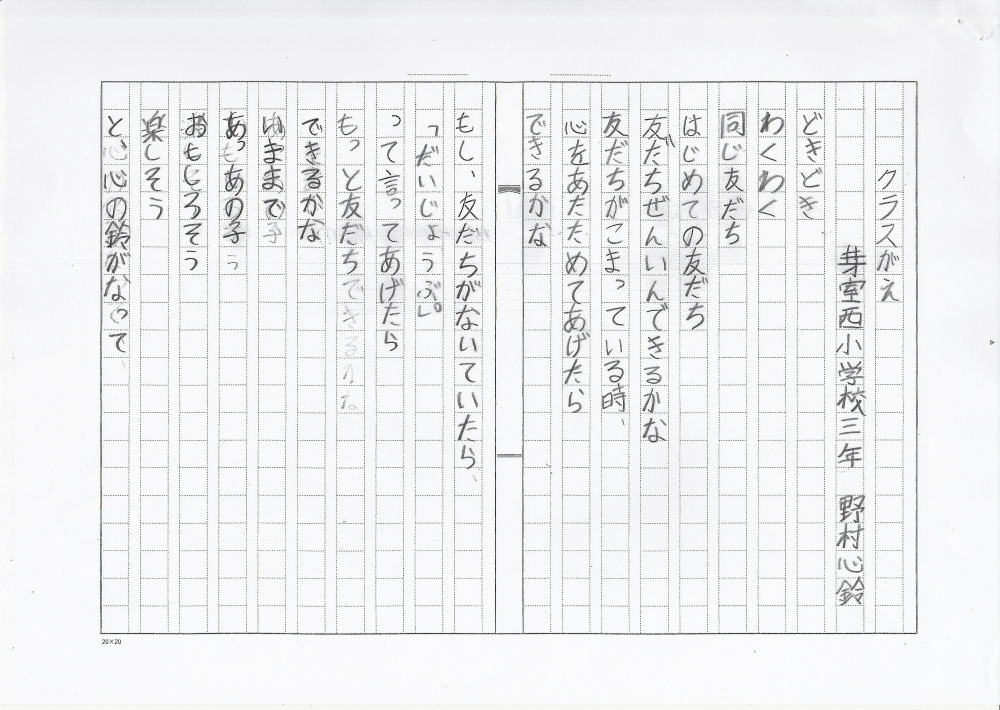 クラスがえ
芽室西小学校三年 野村心鈴
どきどき
わくわく
同じ友だち
はじめての友だち
友だちぜんいんできるかな
友だちがこまっている時、
心をあたためてあげたら
できるかな
もし、友だちがないていたら、
「だいじょうぶ。」
って言ってあげたら
もっと友だちできるかな
できるかな
あっあの子
おもしろそう
楽しそう
と、心の鈴がなって、
20×20